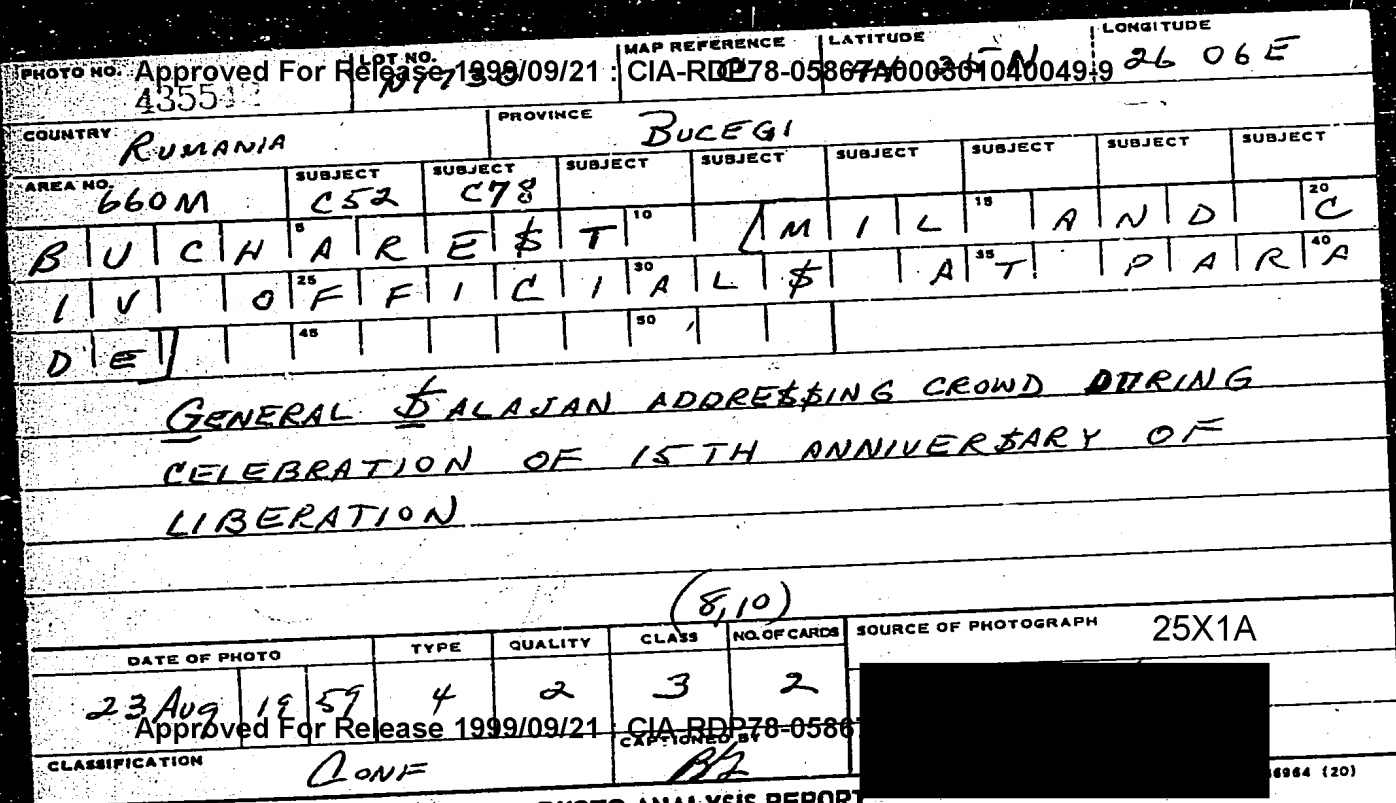 PHOTO NO. LOT NO. MAP REFERENCE LATITUDE LONGITUDE
Approved For Release 1999/09/21 : CIA-RDP78-05867A000301040049-9
N 26 06 E
COUNTRY RUMANIA PROVINCE BUCEGI
AREA NO. 660M SUBJECT C52 SUBJECT C78 SUBJECT SUBJECT SUBJECT SUBJECT SUBJECT SUBJECT
5 10 15 20
BUCHAREST [MIL AND C
25 30 35 40
IV OFFICIALS AT PARA
45 50
DE]
GENERAL SALAJAN ADDRESSING CROWD DURING
CELEBRATION OF 15TH ANNIVERSARY OF
LIBERATION
(8,10)
DATE OF PHOTO TYPE QUALITY CLASS NO. OF CARDS SOURCE OF PHOTOGRAPH 25X1A
23 Aug 19 59 4 2 3 2
Approved For Release 1999/09/21 : CIA-RDP78-0586
CLASSIFICATION CONF CAPTIONED BY
6964 (20)
PHOTO ANALYSIS REPORT